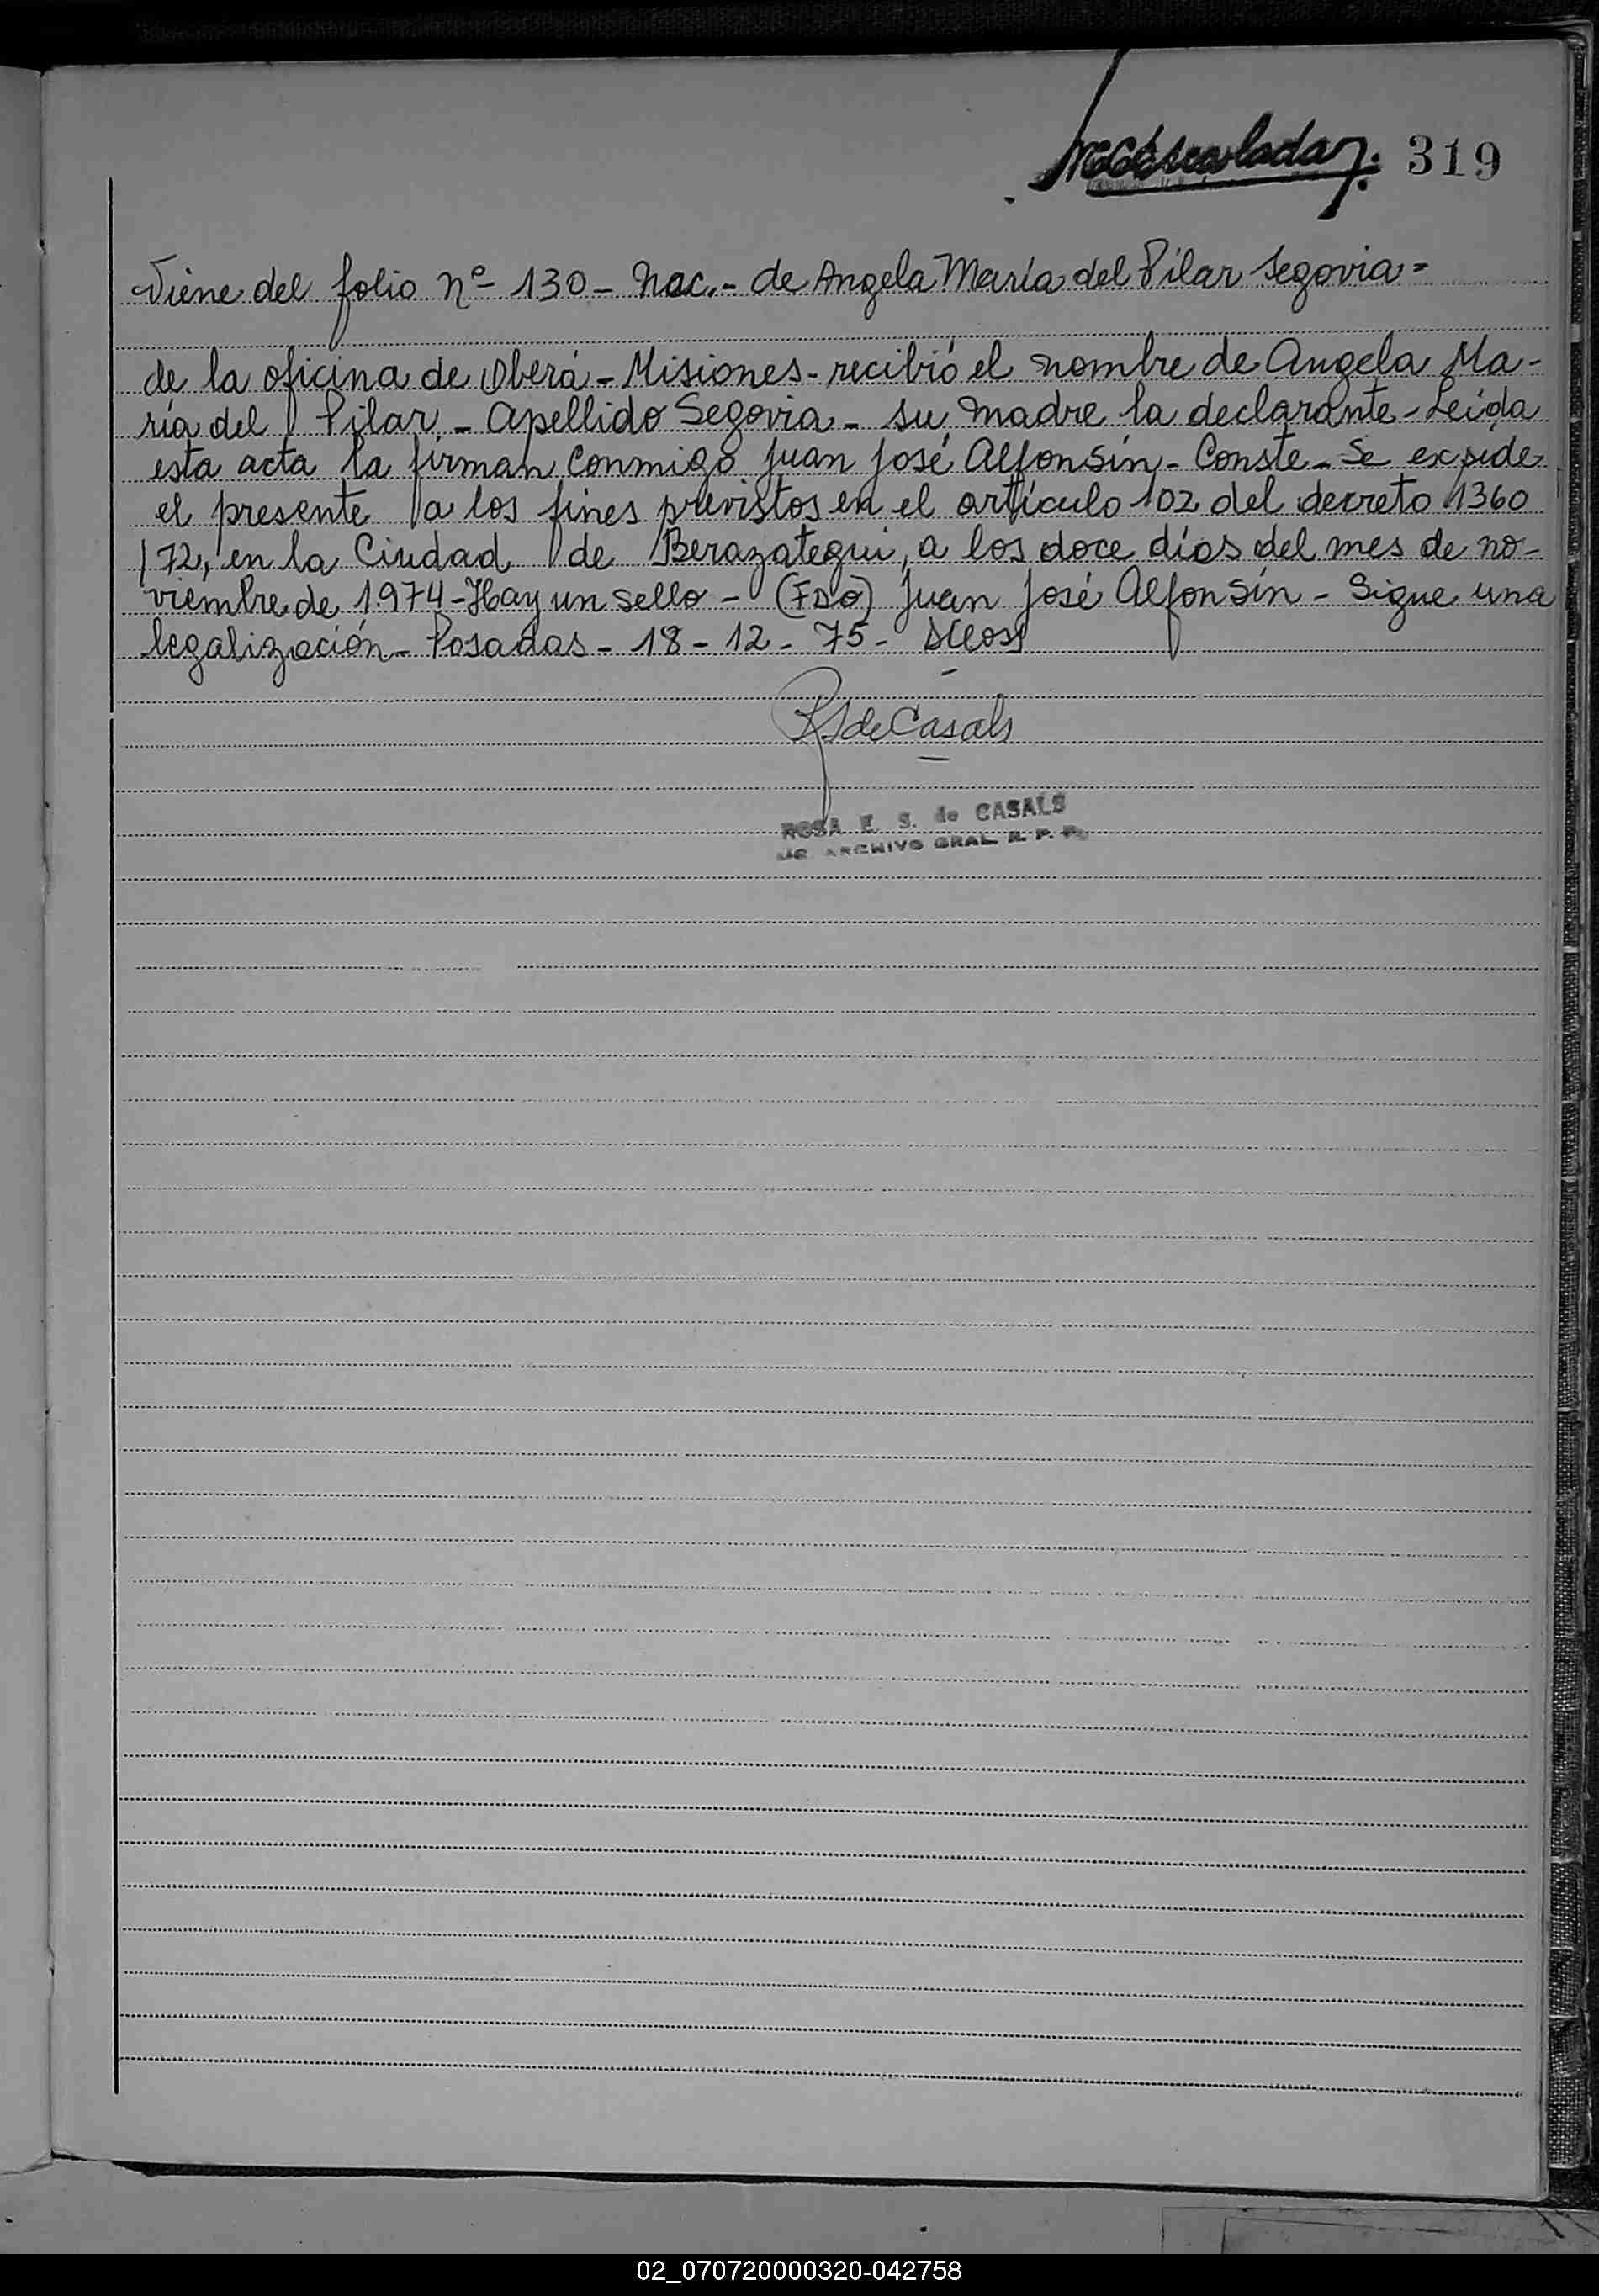 319
Viene del folio Nº 130 - Nac. - de Angela María del Pilar Segovia =
de la oficina de Oberá - Misiones - recibió el nombre de Angela Ma-
ría del Pilar. - Apellido Segovia - su madre la declarante - Leída
esta acta la firman conmigo Juan José Alfonsín - Conste - Se expide
el presente a los fines previstos en el artículo 102 del decreto 1360
/72, en la Ciudad de Berazategui, a los doce días del mes de no-
viembre de 1974 - Hay un sello - (FDO) Juan José Alfonsín - Sigue una
legalización - Posadas - 18 - 12 - 75 -
RS de Casals
ROSA E. S. de CASALS
ARCHIVO GRAL. R. P. P.
02_070720000320-042758